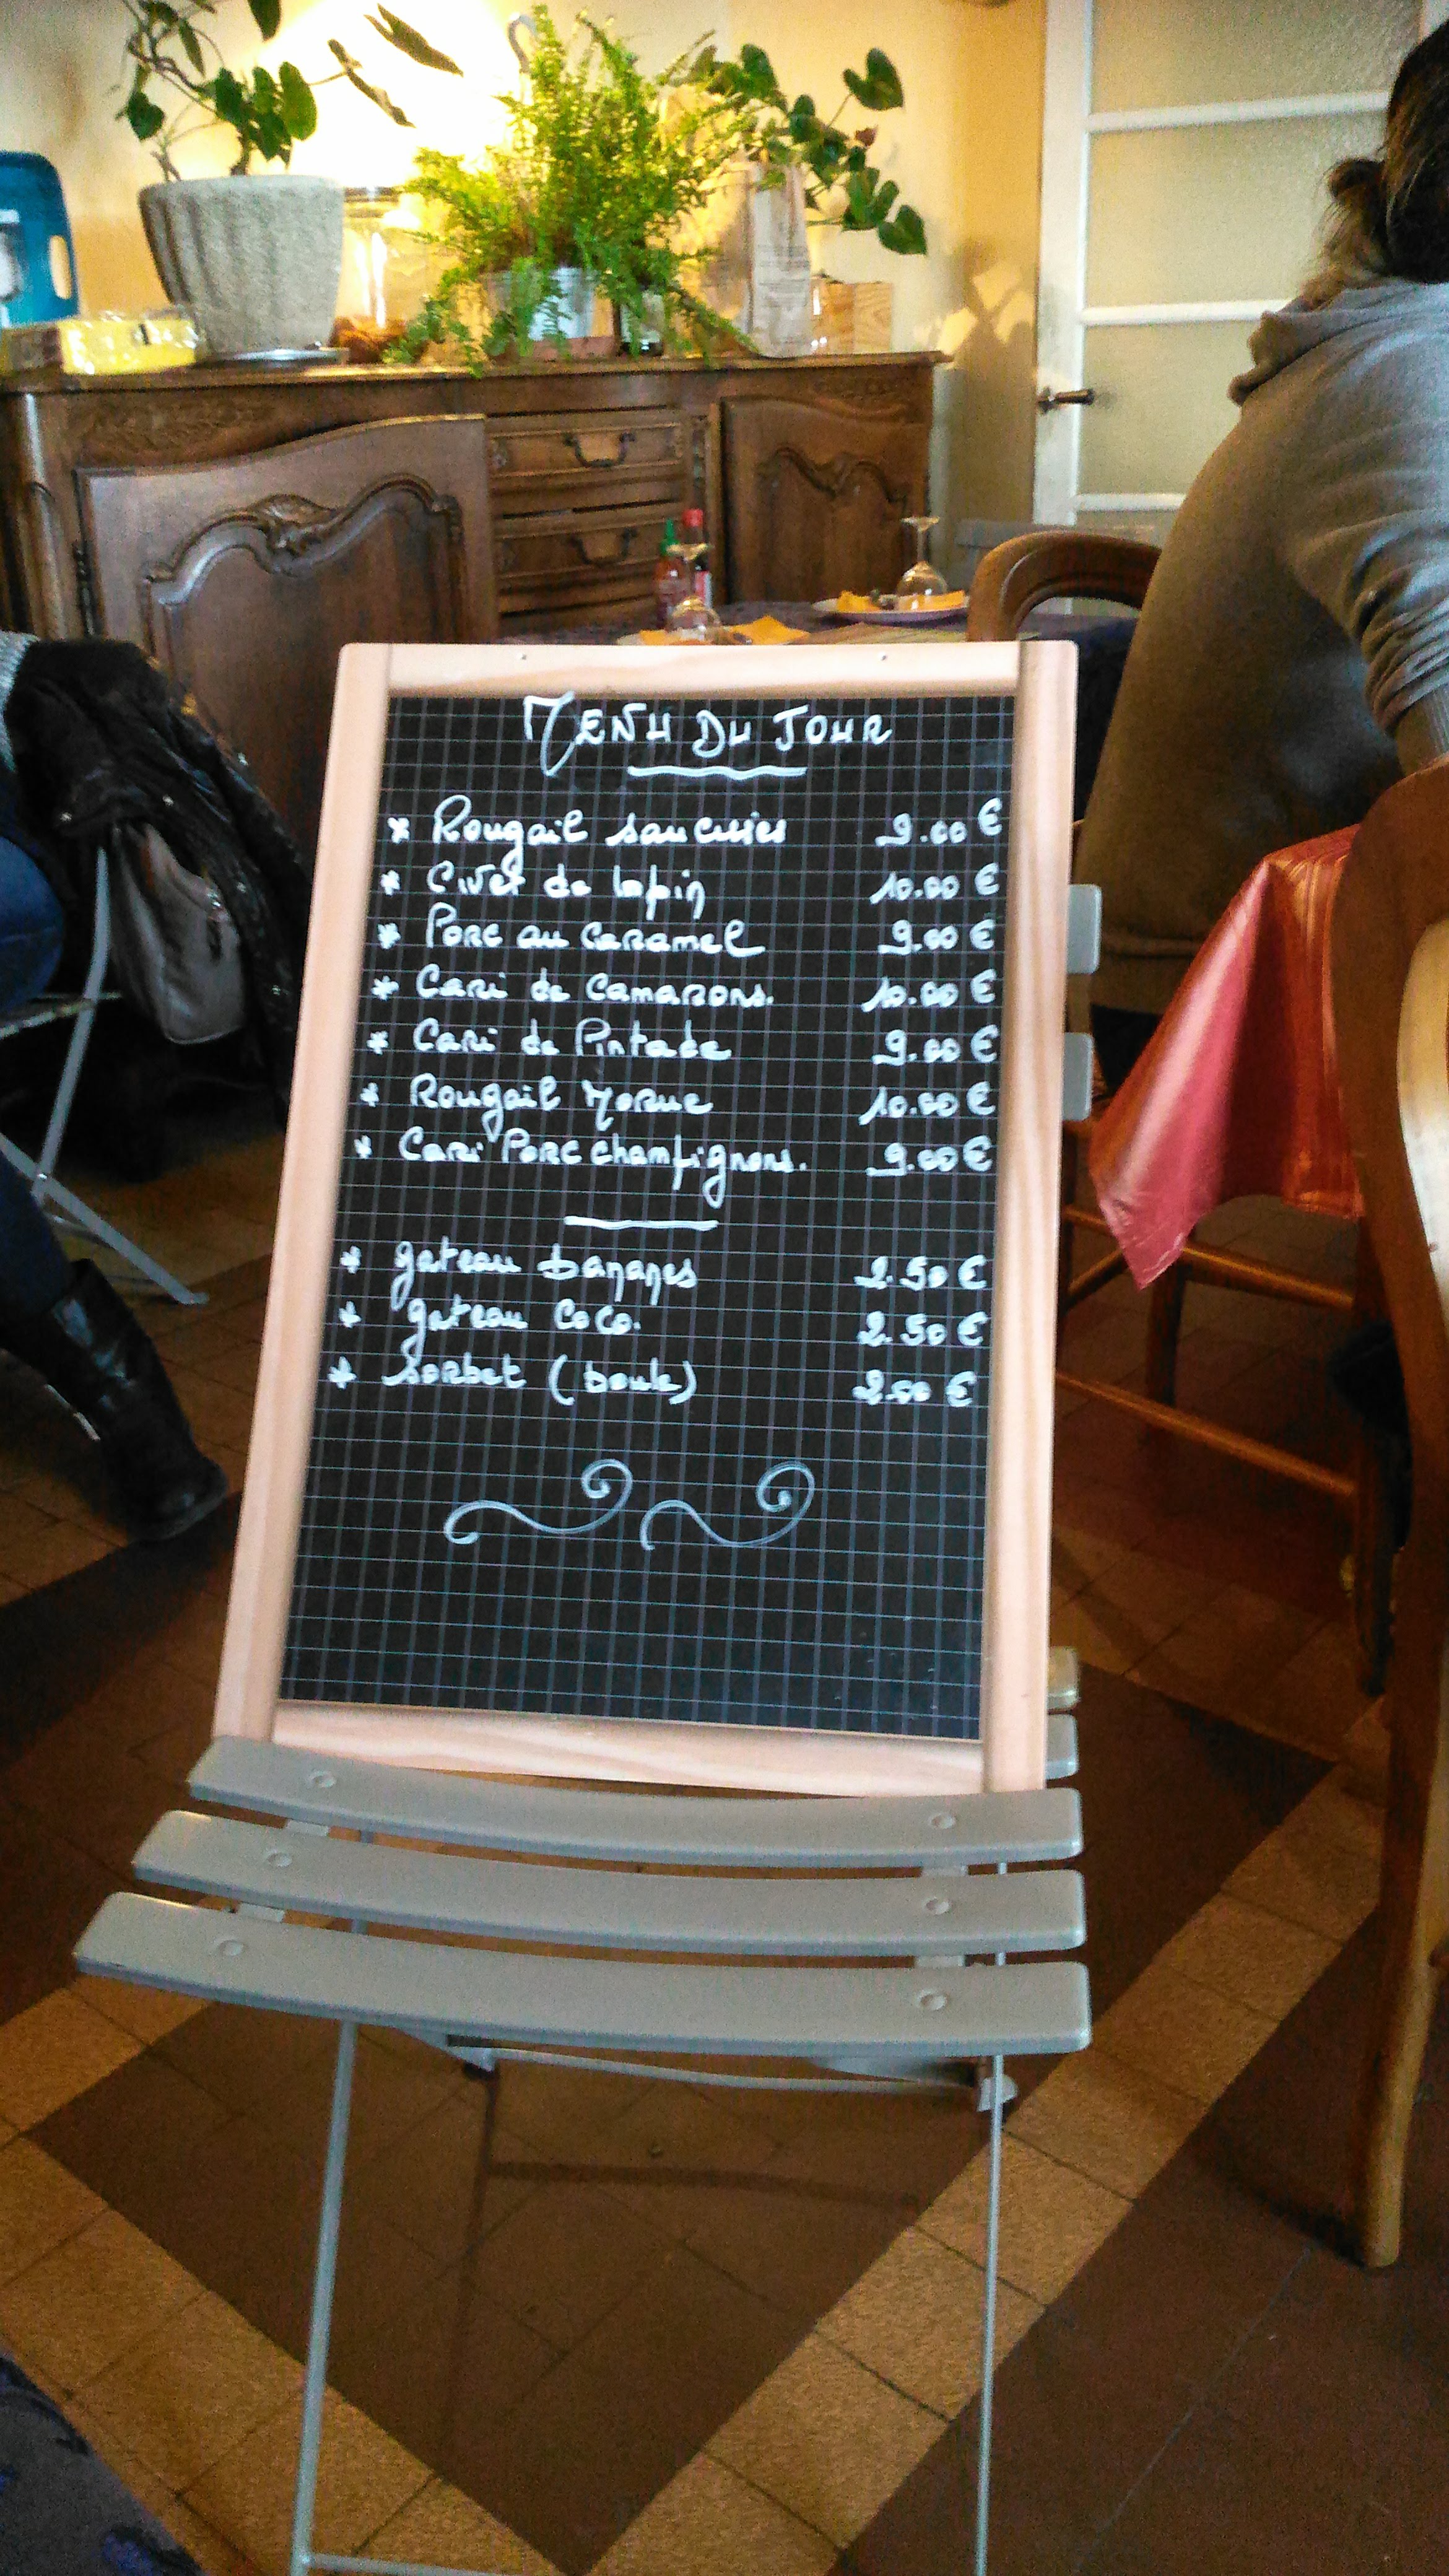 MENU DU JOUR
* Rougail saucisses 9.00 €
* Civet de lapin 10.00 €
* Porc au caramel 9.00 €
* Cari de Camarons. 10.00 €
* Cari de Pintade 9.00 €
* Rougail Morue 10.00 €
* Cari Porc champignons. 9.00 €
* gateau bananes 2.50 €
* gateau coco. 2.50 €
* sorbet (boule) 2.00 €